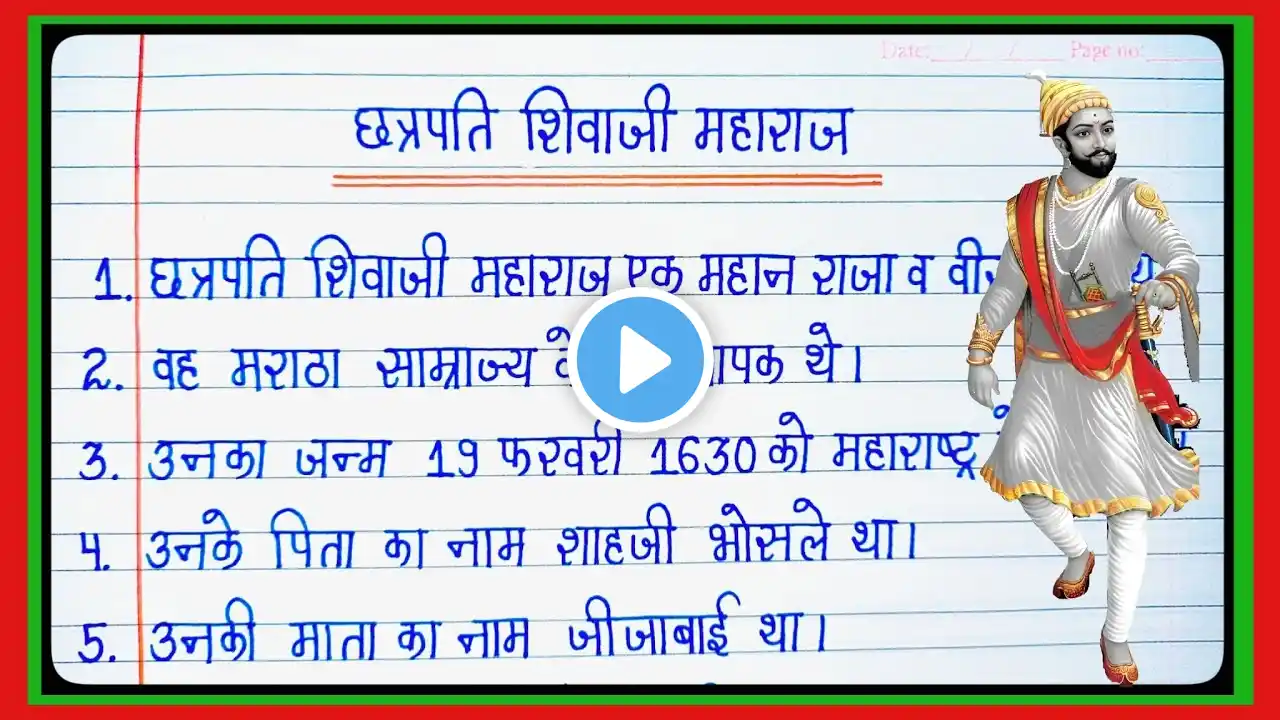 Date:___/___/___ Page no:______
छत्रपति शिवाजी महाराज
1. छत्रपति शिवाजी महाराज एक महान राजा व
2. वह मराठा साम्राज्य थे।
3. उनका जन्म 19 फरवरी 1630 को महाराष्ट्र
4. उनके पिता का नाम शाहजी भोसले था।
5. उनकी माता का नाम जीजाबाई था।